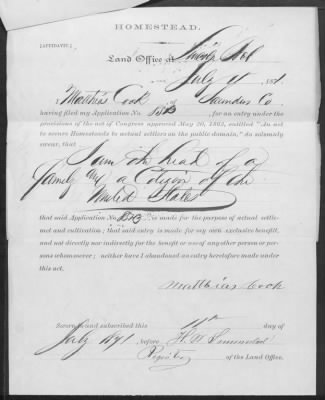 HOMESTEAD.
[AFFIDAVIT.]
Land Office at Lincoln Neb
July 11 1871.
I Matthias Cook of Saunders Co.
having filed my Application No. for an entry under the
provisions of the act of Congress approved May 20, 1862, entitled "An act
to secure Homesteads to actual settlers on the public domain," do solemnly
swear, that
I am the head of a
family and a Citizen of the
United States
that said Application No. is made for the purpose of actual settle-
ment and cultivation; that said entry is made for my own exclusive benefit,
and not directly nor indirectly for the benefit or use of any other person or per-
sons whomsoever; neither have I abandoned an entry heretofore made under
this act.
Matthias Cook
Sworn to and subscribed this 11th day of
July 1871 before
Register of the Land Office.